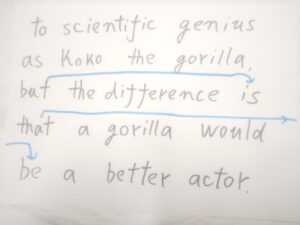 to scientific genius
as Koko the gorilla,
but the difference is
that a gorilla would
be a better actor.